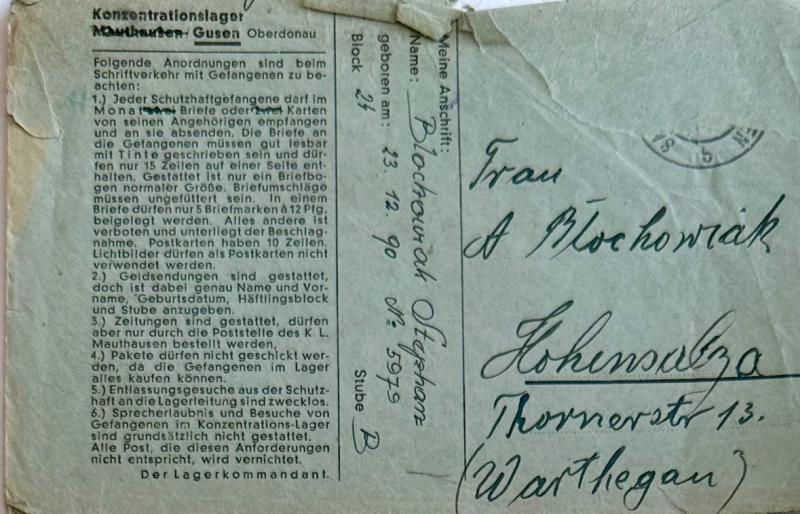 Konzentrationslager
Mauthausen Gusen Oberdonau
Folgende Anordnungen sind beim
Schriftverkehr mit Gefangenen zu be-
achten:
1.) Jeder Schutzhaftgefangene darf im
Monat zwei Briefe oder zwei Karten
von seinen Angehörigen empfangen
und an sie absenden. Die Briefe an
die Gefangenen müssen gut lesbar
mit Tinte geschrieben sein und dür-
fen nur 15 Zeilen auf einer Seite ent-
halten. Gestattet ist nur ein Briefbo-
gen normaler Größe. Briefumschläge
müssen ungefüttert sein. In einem
Briefe dürfen nur 5 Briefmarken à 12 Pfg.
beigelegt werden. Alles andere ist
verboten und unterliegt der Beschlag-
nahme. Postkarten haben 10 Zeilen.
Lichtbilder dürfen als Postkarten nicht
verwendet werden.
2.) Geldsendungen sind gestattet,
doch ist dabei genau Name und Vor-
name, Geburtsdatum, Häftlingsblock
und Stube anzugeben.
3.) Zeitungen sind gestattet, dürfen
aber nur durch die Poststelle des K. L.
Mauthausen bestellt werden,
4.) Pakete dürfen nicht geschickt wer-
den, da die Gefangenen im Lager
alles kaufen können.
5.) Entlassungsgesuche aus der Schutz-
haft an die Lagerleitung sind zwecklos.
6.) Sprecherlaubnis und Besuche von
Gefangenen im Konzentrations-Lager
sind grundsätzlich nicht gestattet.
Alle Post, die diesen Anforderungen
nicht entspricht, wird vernichtet.
Der Lagerkommandant.
Meine Anschrift:
Name: Błochowiak Stephan
geboren am: 23. 12. 90 № 5979
Block 24 Stube B
Frau
A Błochowiak
Hohensalza
Thornerstr 13.
(Warthegau)